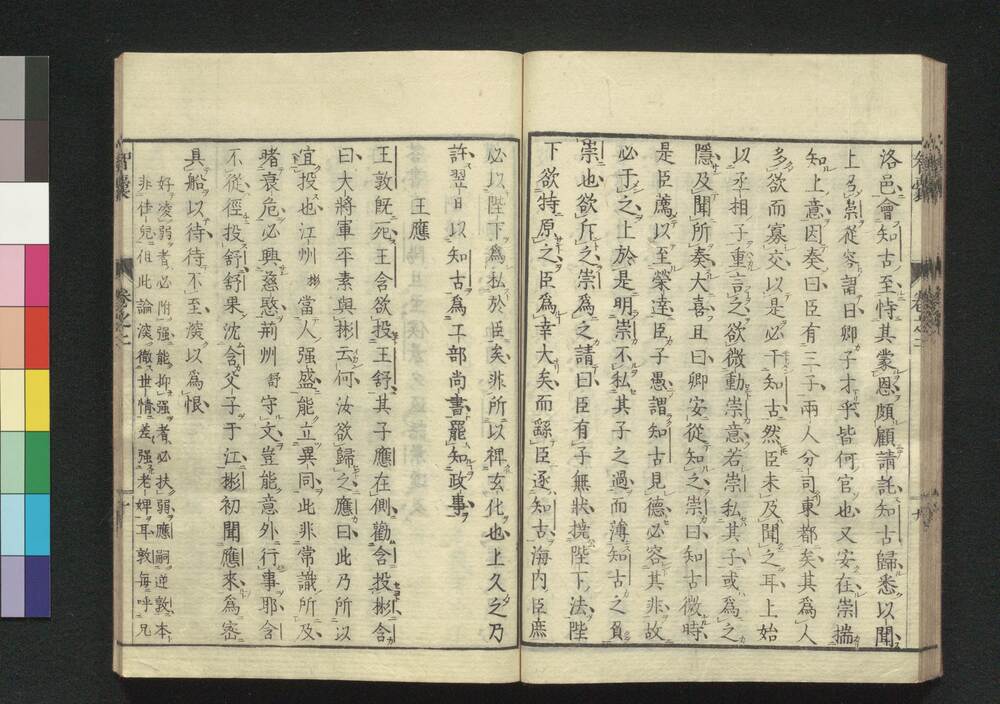 洛邑會知古至恃其蒙恩頗顧請託知古歸悉以聞
上召崇從容謂曰卿子才乎皆何官也又安在崇揣
知上意因奏曰臣有三子兩人分司東都矣其爲人
多欲而寡交以是必干知古然臣未及聞之耳上始
以丞相子重言之欲微動崇意若崇私其子或爲之
隱及聞所奏大喜且曰卿安從知之崇曰知古微時
是臣薦以至榮達臣子愚謂知古見德必容其非故
必于之上於是明崇不私其子之過而薄知古之負
崇也欲斥之崇爲之請曰臣有子無狀撓陛下法陛
下欲特原之臣爲幸大矣而繇臣逐知古海内臣庶
卷之二
九
必以陛下爲私於臣矣非所以裨玄化也上久之乃
許翌日以知古爲工部尚書罷知政事
王應
王敦既死王含欲投王舒其子應在側勸含投彬含
曰大將軍平素與彬云何汝欲歸之應曰此乃所以
宜投也江州彬當人强盛能立異同此非常識所及
睹衰危必興慈愍荊州舒守文豈能意外行事耶含
不從徑投舒舒果沈含父子于江彬初聞應來爲密
具船以待待不至深以爲恨
好凌弱者必附强能抑强者必扶弱應嗣逆敦本
非佳兒但此論深微世情差强老婢耳敦每呼兄
智囊
卷之二
十